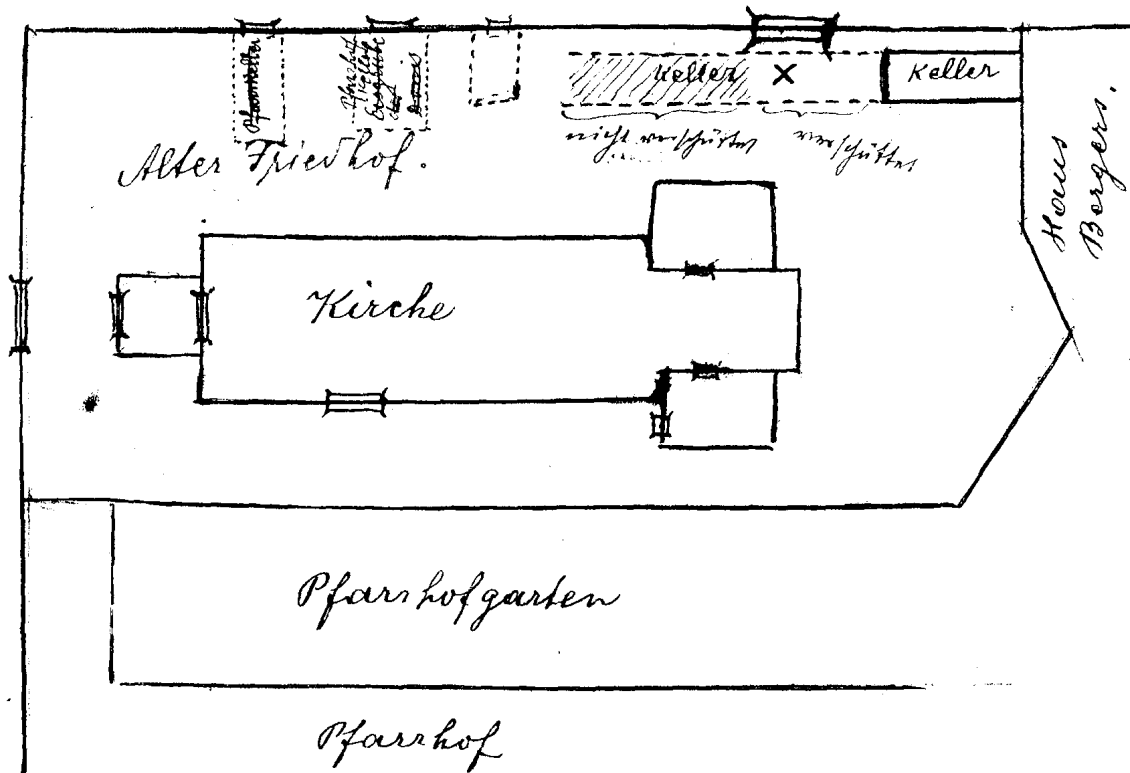 Pfarrkeller
Keller
Keller
nicht verschüttet
verschüttet
Alter Friedhof.
Haus
Bergers.
Kirche
Pfarrhofgarten
Pfarrhof